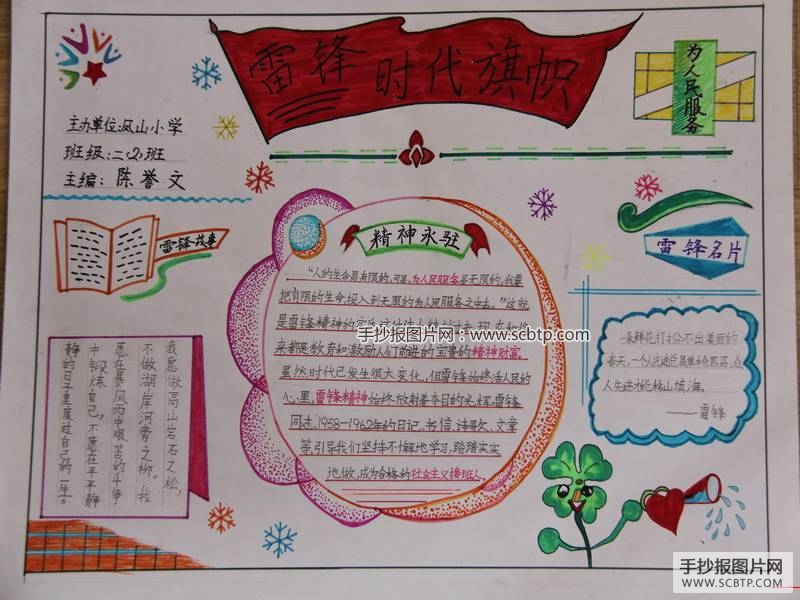 雷锋时代旗帜
为人民服务
主办单位:凤山小学
班级:二.(2)班
主编:陈誉文
雷锋故事
精神永驻
雷锋名片
“人的生命是有限的,可是,为人民服务是无限的,我要
把有限的生命投入到无限的为人民服务之中去。”这就
是雷锋精神的
手抄报图片网:www.scbtp.com
来都是教育和激励人们前进的宝贵的精神财富。
虽然时代已发生很大变化,但雷锋始终活人民的
心里,雷锋精神始终放射着夺目的光辉,雷锋
同志,1958—1962年的日记、书信、诗歌、文章
等,引导我们坚持不懈地学习,踏踏实实
地做,成为合格的社会主义接班人。
我愿做高山岩石之松,
不做湖岸河旁之柳。我
愿在暴风雨中艰苦的斗争
中锻炼自己,不愿在平平静
静的日子里度过自己的一生。
一朵鲜花打扮不出美丽的
春天,一个人
人先进才能移山填海。
——雷锋
手抄报图片网
WWW.SCBTP.COM